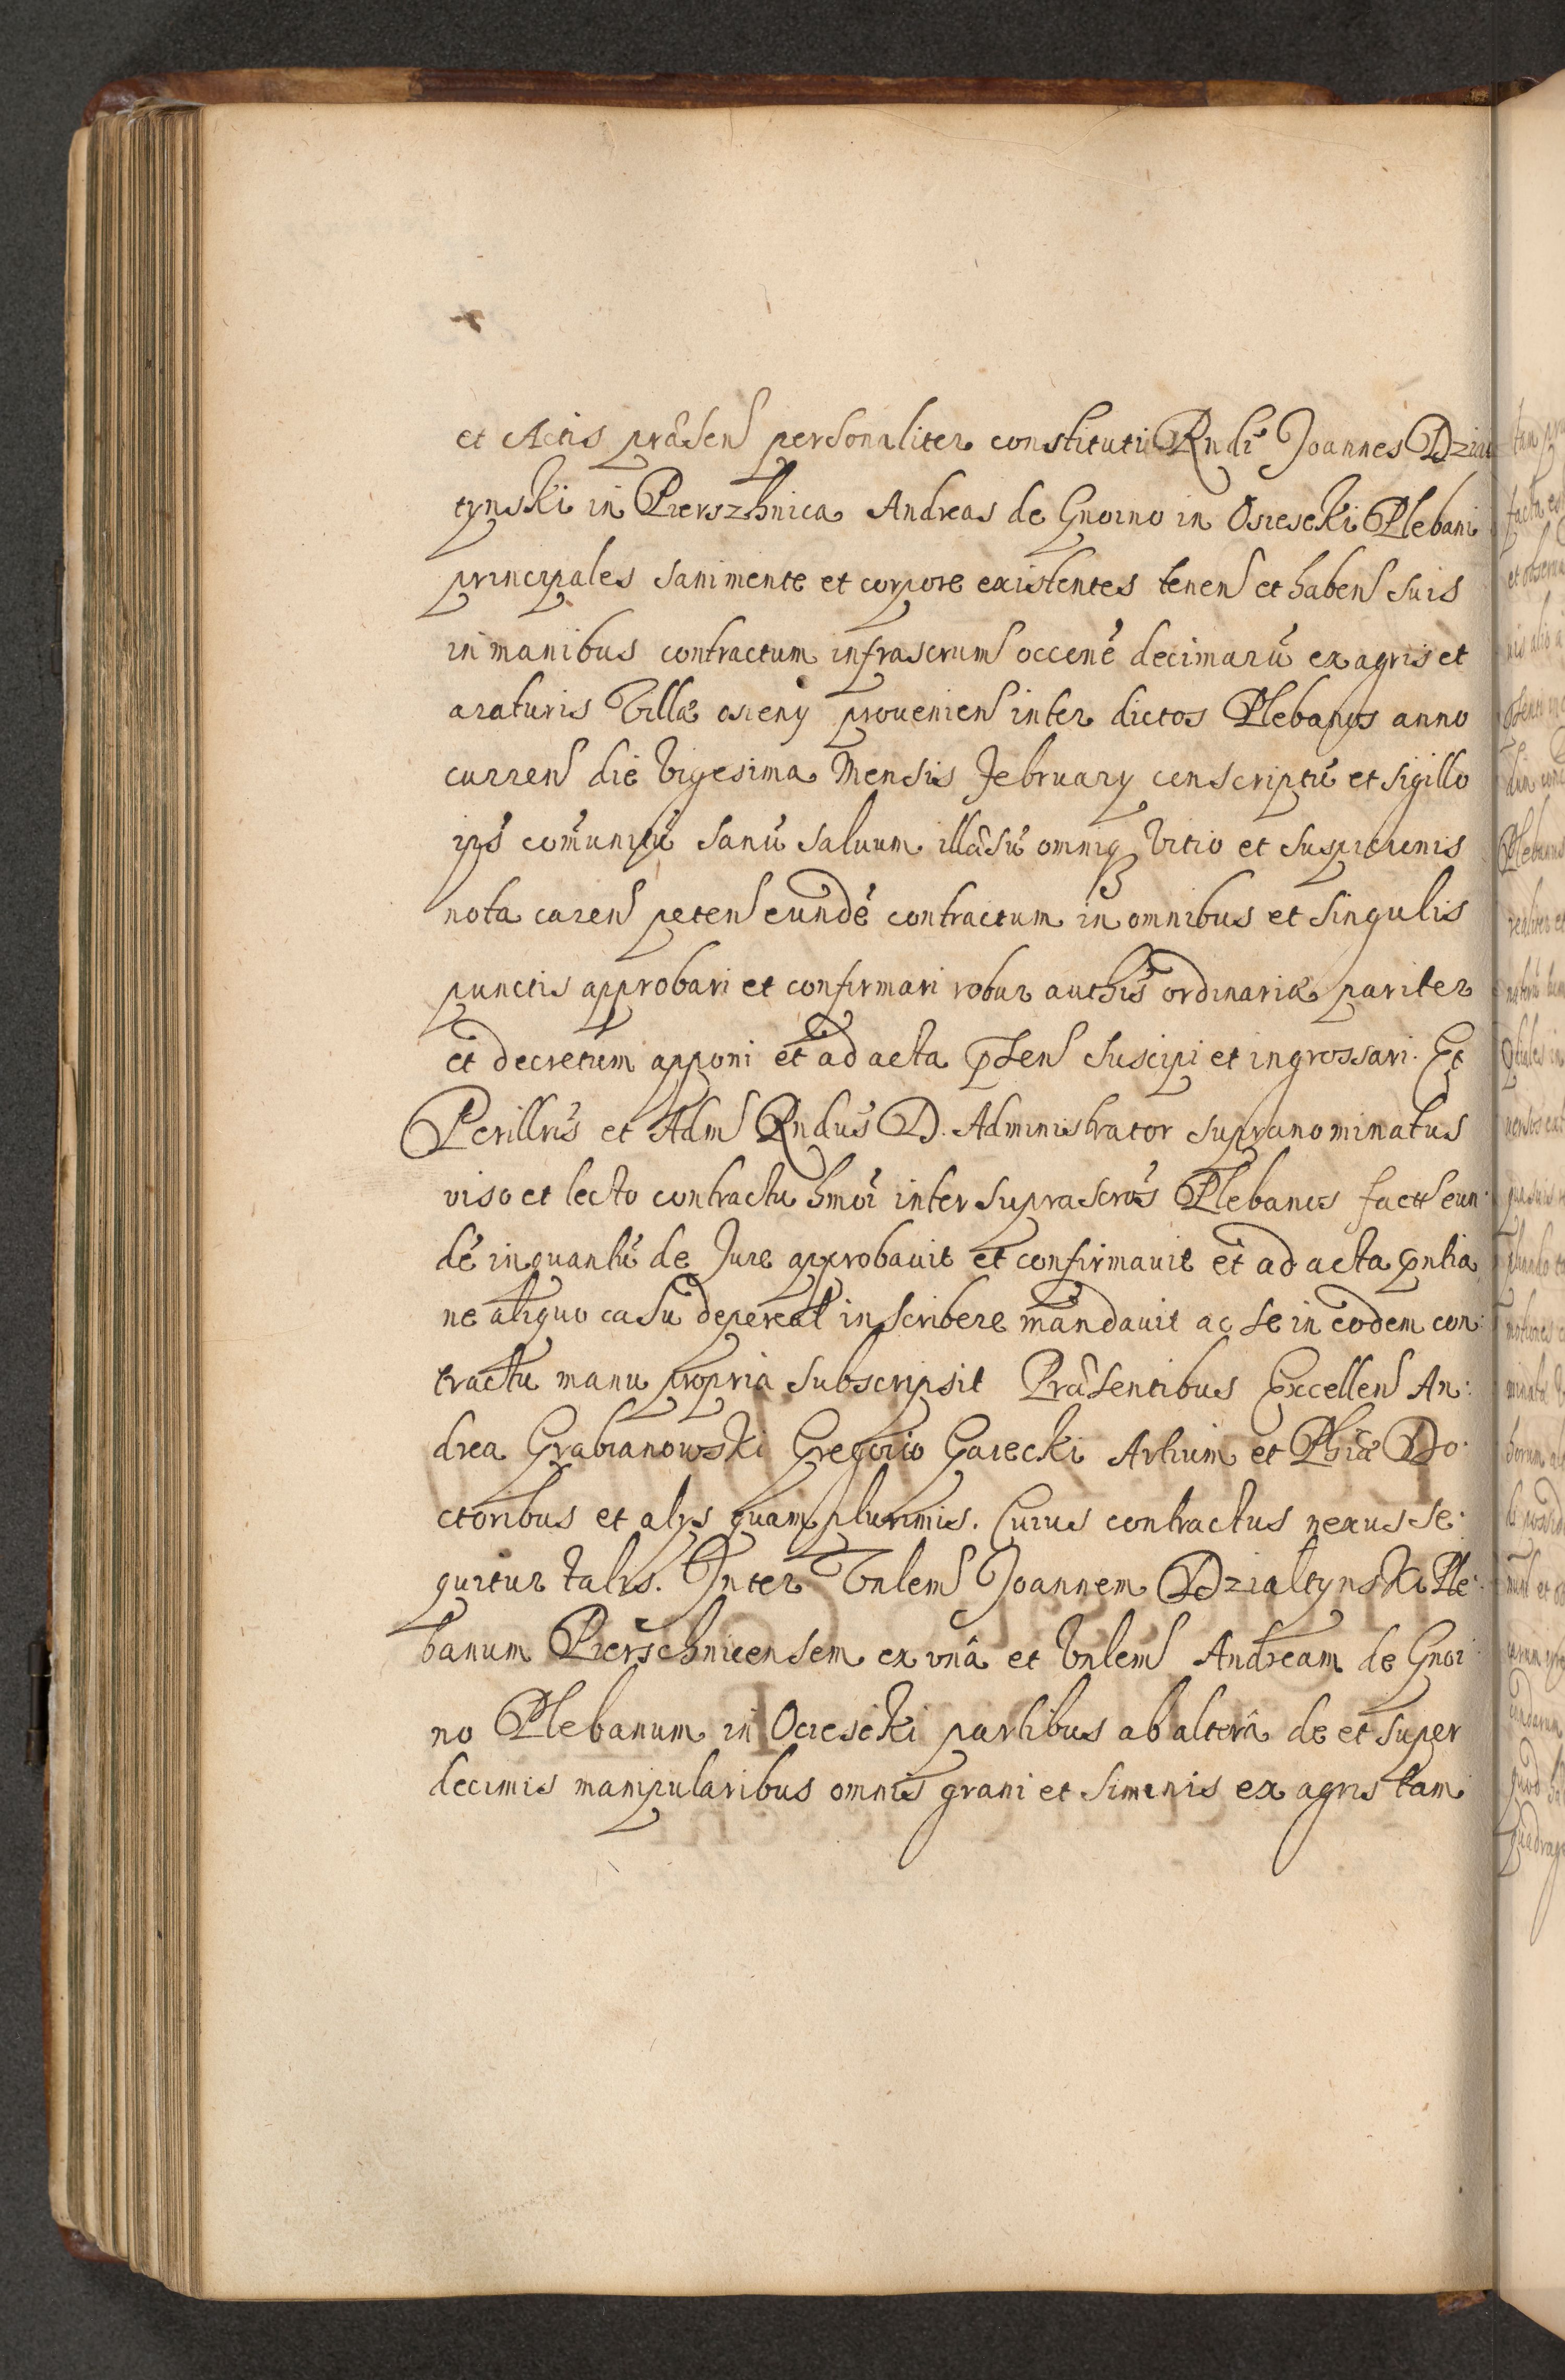 et Actis præsens personaliter constituti Rndi Joannes Dzia
tynski in Pierszhnica Andreas de Gnoino in Osieseki Plebani
principales sani mente et corpore existentes tenens et habens suis
in manibus contractum infrascrum occone decimarū ex agris et
araturis Villæ osieny prouenien inter dictos Plebanos anno
curren die Vigesima Mensis February conscriptū et sigillo
ips comunitū sanū saluum illæsū omniq Vitio et suspicionis
nota caren peten eundē contractum in omnibus et singulis
punctis approbari et confirmari robur authis ordinariæ pariter
et decretum apponi et ad acta psen suscipi et ingrossari. Et
Perillris et Adm Rndus D. Administrator supranominatus
viso et lecto contractu hmoi inter suprascros Plebanos fact eun
dē inquantū de Jure approbauit et confirmauit et ad acta pntia
ne aliquo casu depereat inscribere mandauit ac se in eodem con:
tractu manu propria subscripsit Præsentibus Excellen An:
drea Grabianowski Gregorio Garecki Artium et Phiæ Do:
ctoribus et alys quam plurimis. Cuius contractus nexus se:
quitur talis. Inter Vnlem Joannem Dzialtynski Ple:
banum Pierschnicensem ex vnâ et Vnlem Andream de Gnoi:
no Plebanum in Ocieseki partibus ab alterâ de et super
decimis manipularibus omnis grani et siminis ex agris tam